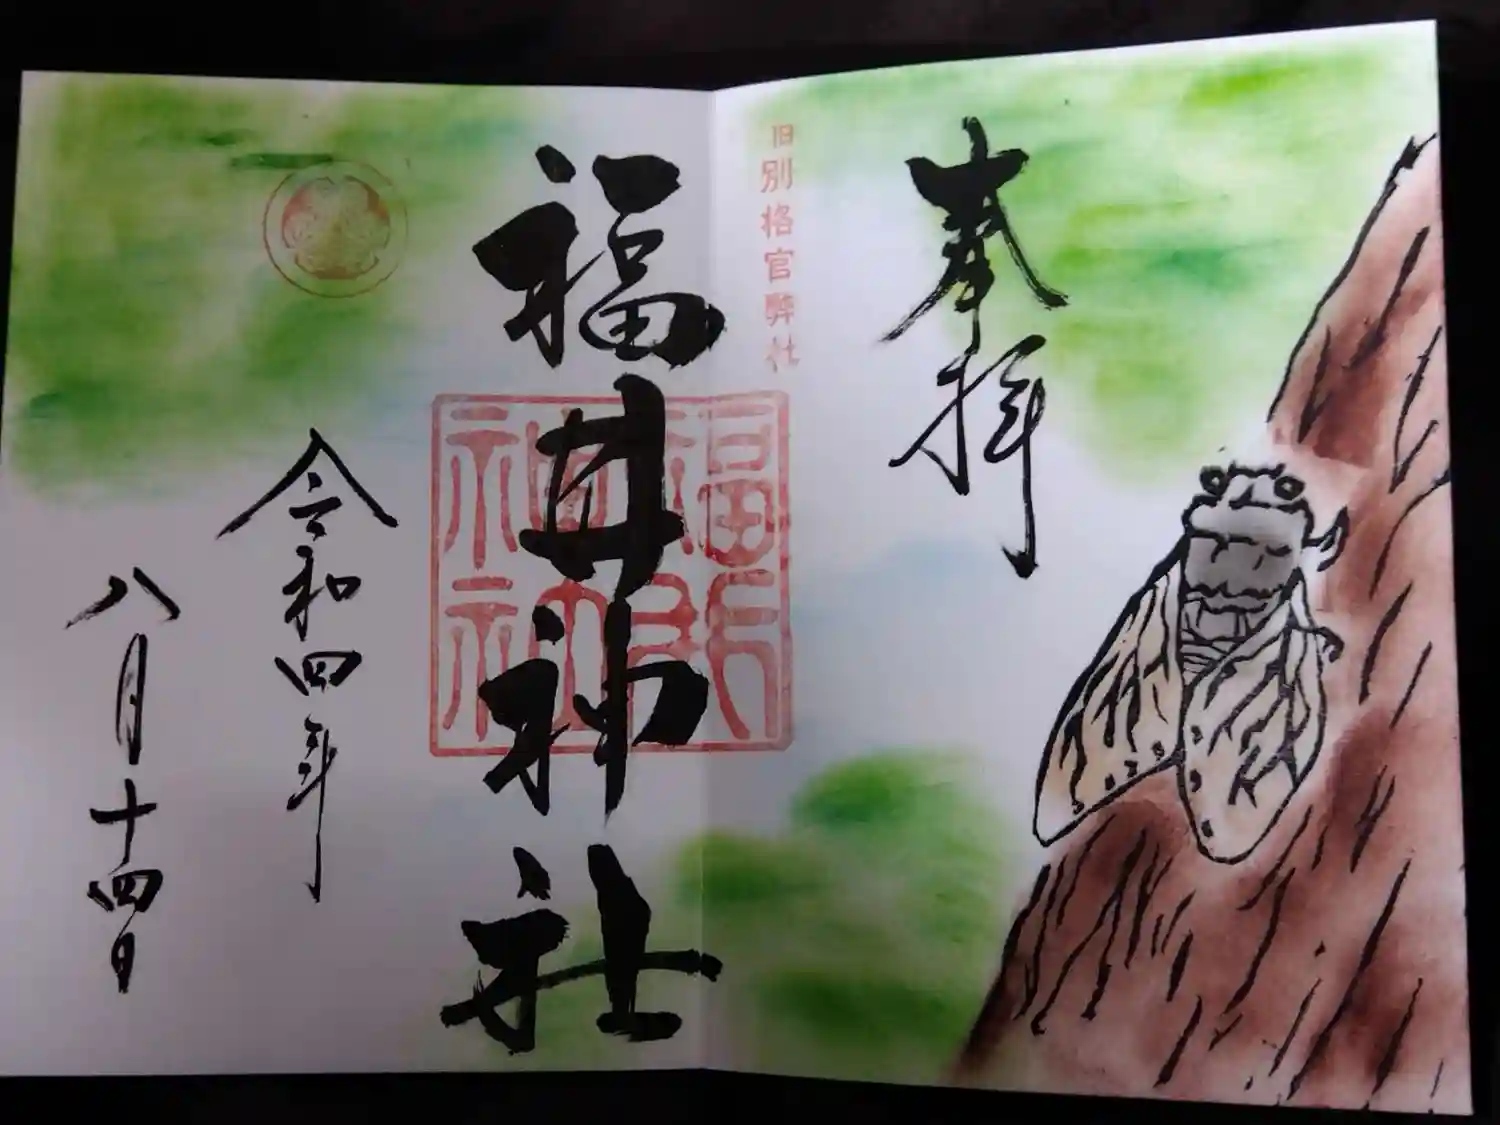 奉拝
旧別格官弊社
福井神社
令和四年
八月十四日